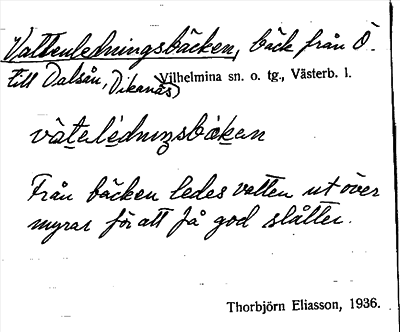 Vattenledningsbäcken, bäck från Ö.
till Dalsån, Dikanäs, Vilhelmina sn. o. tg., Västerb. l.
vätalédningsbäkan
Från bäcken ledes vatten ut över
myrar för att få god slåtter.
Thorbjörn Eliasson, 1936.